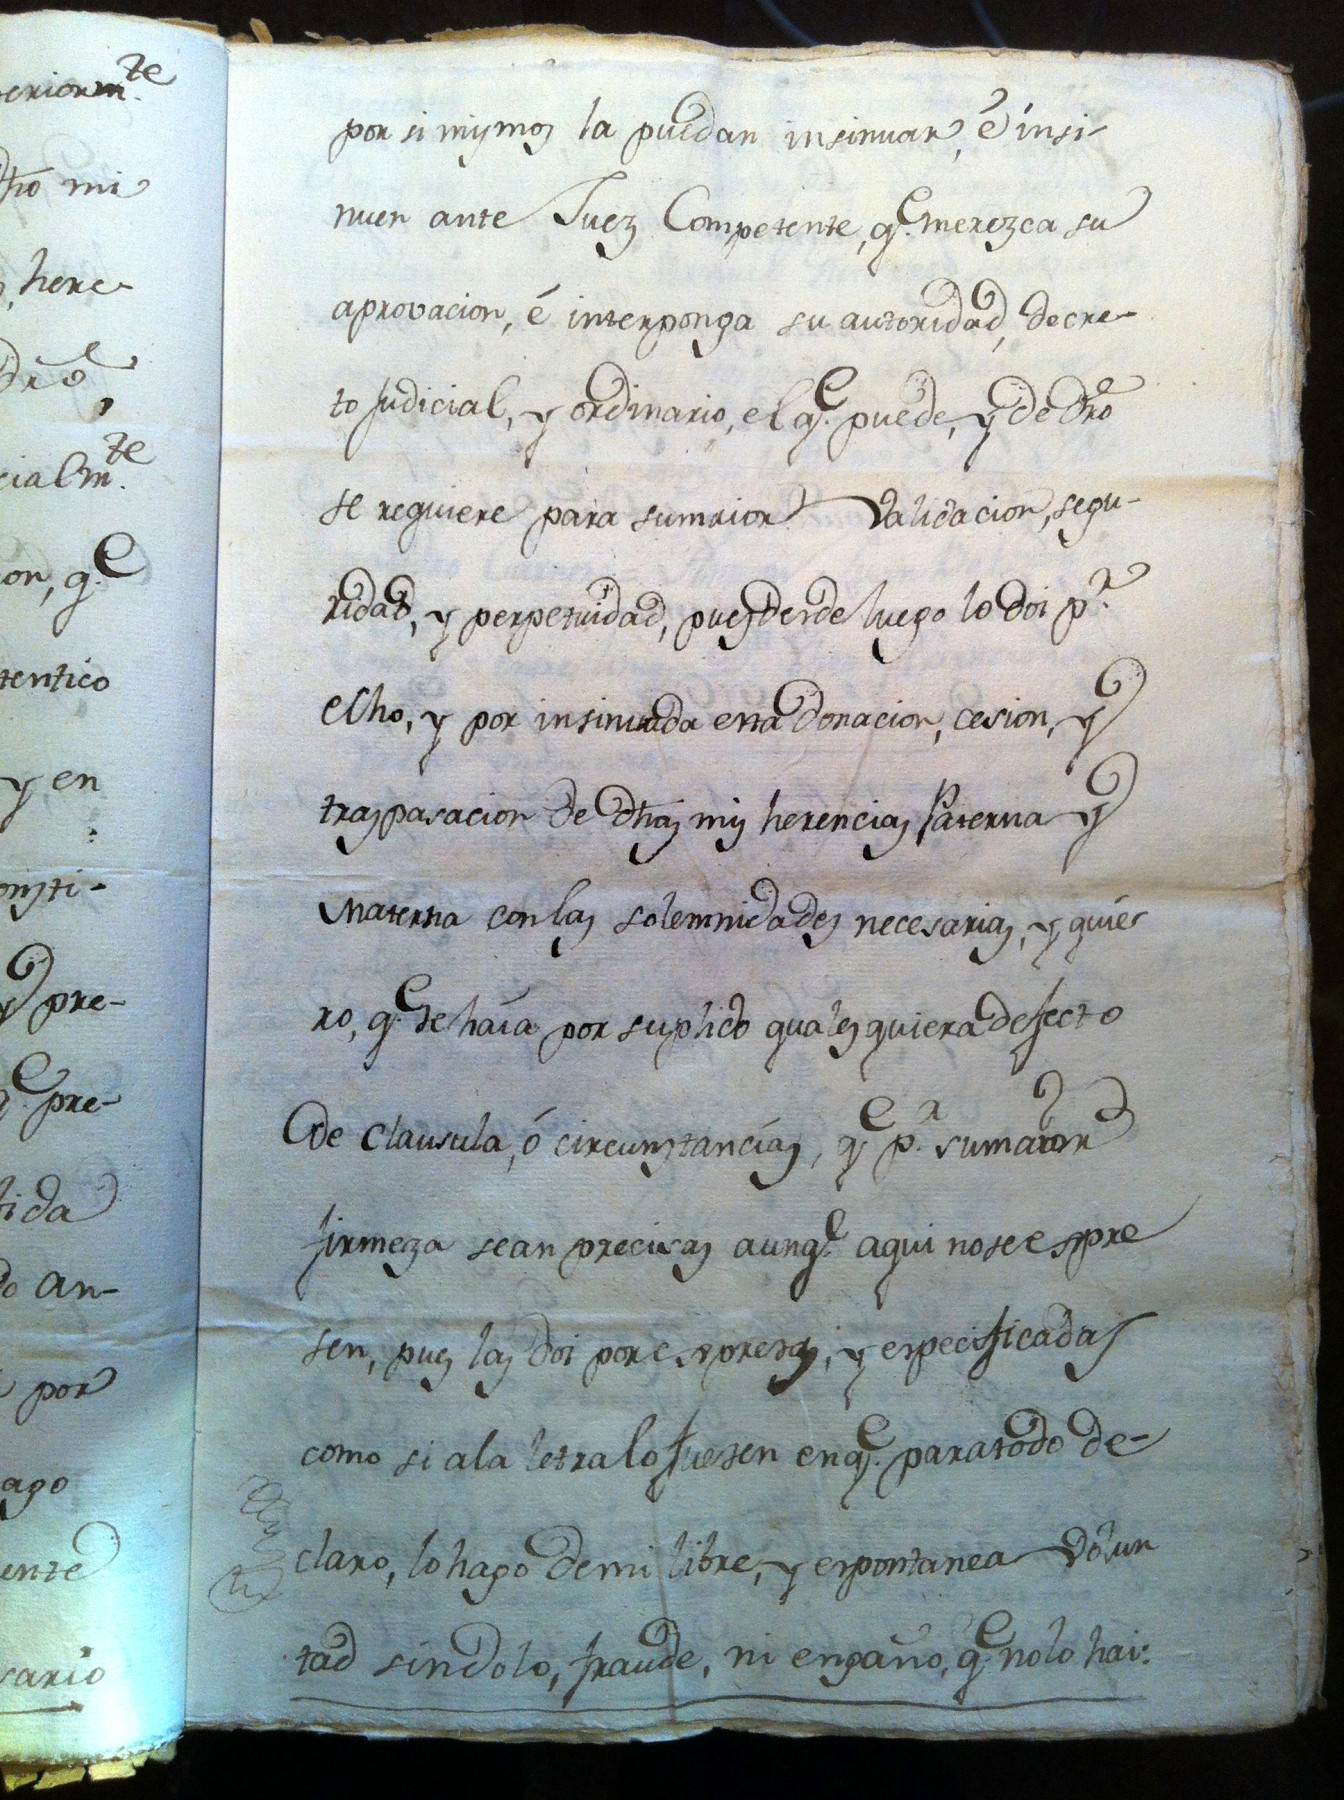 eriorm.te
dho mi
here-
dro,
cialm.te
on, q.e
tentico
y en
onsti-
y pre-
q.e pre-
tida
do an-
por
ago
ente
sario
por si mismos la puedan insinuar, é insi-
nuen ante Juez Competente, q.e merezca su
aprovacion, é interponga su autoridad, decre-
to judicial, y ordinario, el q.e puede, y de dro
se requiere para su maior validacion, segu-
ridad, y perpetuidad, pues desde luego lo doi p.r
echo, y por insinuada esta donacion, cesion, y
traspasacion de dhas mis herencias Paterna y
Materna con las solemnidades necesarias, y quie-
ro, q.e se haia por suplido qualesquiera defecto
de clausula, ó circunstancias, q.e p.a su maior
firmeza sean precisas aunq.e aqui no se espre
sen, pues las doi por espresas, y especificadas
como si a la letra lo fuesen en q.e para todo de-
claro, lo hago de mi libre, y espontanea volun
tad sin dolo, fraude, ni engaño, q.e no lo hai: